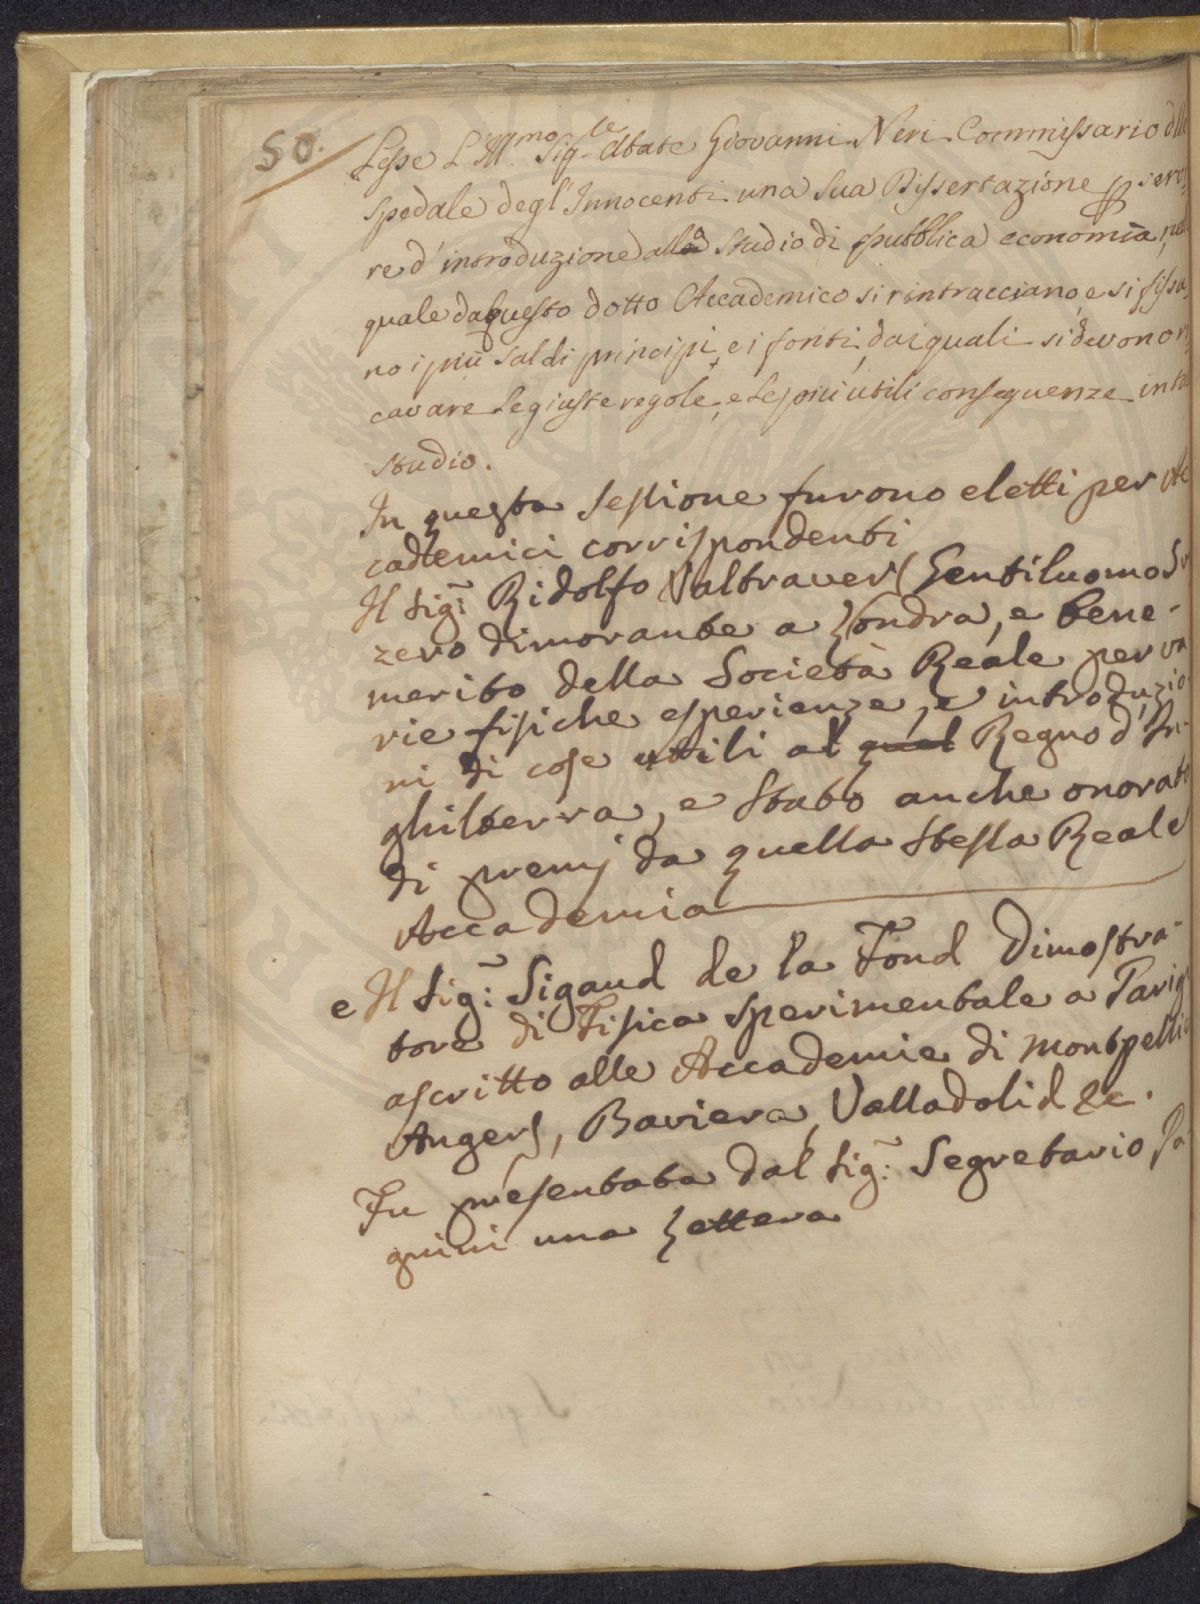 50.
Lesse L'Ill.mo Sig.le Abate Giovanni Neri Commissario dello
Spedale degl'Innocenti una sua Dissertazione p servi
re d'introduzione allo Studio di pubblica economia, nel
quale da questo dotto Accademico si rintracciano, e si fissa
no i più saldi principi, e i fonti, dai quali si devono ri
cavare le giuste regole, e le più utili conseguenze in tal
studio.
In questa sessione furono eletti per Ac
cademici corrispondenti
Il Sig: Ridolfo Valtravers Gentiluomo Sv
zero dimorante a Londra, e bene-
merito della Società Reale per va
rie fisiche esperienze, e introduzio
ni di cose utili al qual Regno d'In-
ghilterra, e stato anche onorato
di premj da quella stessa Reale
Accademia
e Il Sig: Sigaud de la Fond Dimostra-
tore di Fisica sperimentale a Parigi
ascritto alle Accademie di Montpellie
Angers, Baviera, Valladolid &c.
Fu presentata dal Sig: Segretario Pa
gnini una Lettera